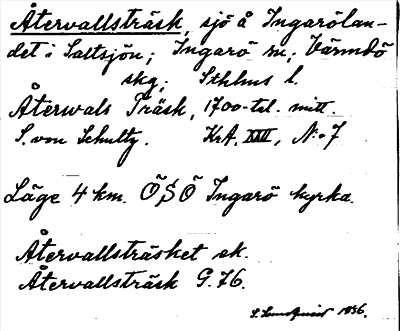 Återvallsträsk, sjö å Ingarölan-
det i Saltsjön; Ingarö sn; Värmdö
skg; Sthlms l.
Återwals Träsk, 1700-tal. mitt.
S. von Schultz. KrA, XXII, No 7
Läge 4 km. ÖSÖ Ingarö kyrka.
Återvallsträsket ek.
Återvallsträsk G. 76.
1936.